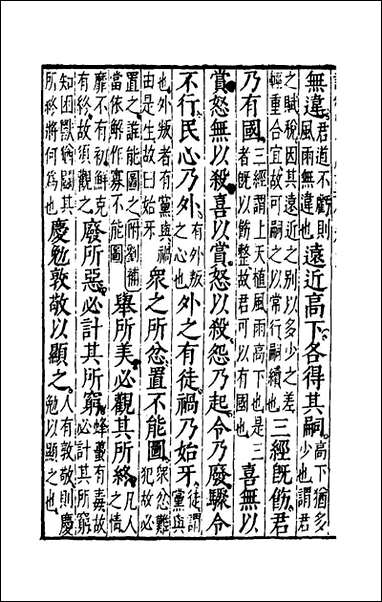 無違君道不虧則風雨無違也遠近高下各得其嗣高下猶多少也謂君
之賦稅因其遠近之別以多少之差輕重合宜故可嗣之以常行嗣續也三經既飭君
乃有國三經謂上天植風雨高下也是三者既以飭整故君可以有國也喜無以
賞怒無以殺喜以賞怒以殺怨乃起令乃發驟令
不行民心乃外有外叛之心也外之有徒禍乃始牙徒謂黨與
也外叛者有黨與禍由是生故曰始牙衆之所忿置不能圖衆忿難犯故必
置之誰能圖之附劉補當依解作寡不能圖舉所美必觀其所終凡人之情
靡不有初鮮克有終故須觀之廢所惡必計其所窮蜂蠆有毒故必計其所窮
知困獸猶鬬其所終將何爲也慶勉敦敬以顯之人有敦敬則慶勉以顯之也